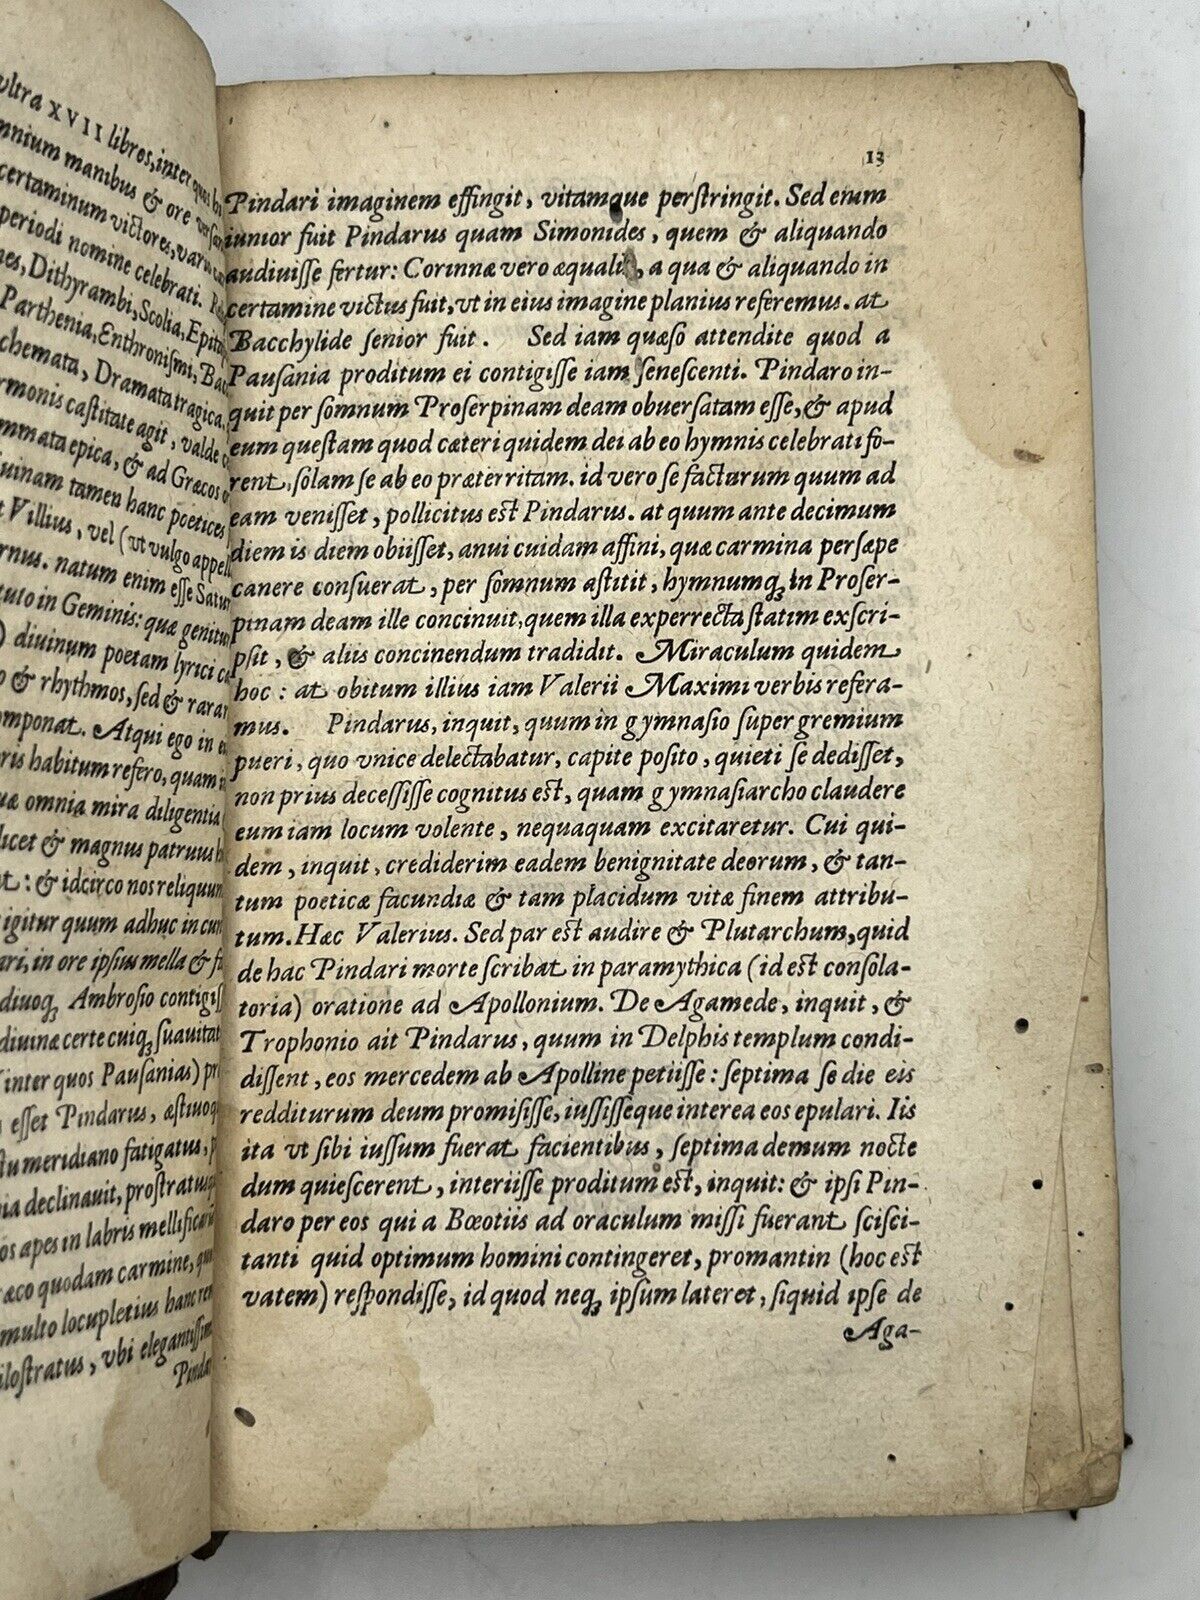 ultra XVII libros, inter quos
omnium manibus & ore
certaminum victores, vario
periodi nomine celebrati.
Dithyrambi, Scolia,
Parthenia, Enthronismi,
Dramata tragica,
castitate agit, valde
epica, & ad Græcos
tamen hanc poetices
Villius, vel (vt vulgo
natum enim esse
in Geminis: quæ
) diuinum poetam lyrici
& rhythmos, sed &
componat. Atqui ego in
habitum refero, quam
omnia mira diligentia
& magnus patruus
: & idcirco nos
igitur quum adhuc in
in ore ipsius mella &
Ambrosio
certe cuiqꝫ
inter quos Pausanias)
esset Pindarus,
meridiano fatigatus,
declinauit,
apes in labris
quodam carmine,
multo locupletius hanc
vbi
13
Pindari imaginem effingit, vitamque perſtringit. Sed enim
iunior fuit Pindarus quam Simonides, quem & aliquando
audiuiſſe fertur: Corinnæ vero æqualis, a qua & aliquando in
certamine victus fuit, vt in eius imagine planius referemus. at
Bacchylide ſenior fuit. Sed iam quæſo attendite quod a
Pauſania proditum ei contigiſſe iam ſeneſcenti. Pindaro in-
quit per ſomnum Proſerpinam deam obuerſatam eſſe, & apud
eum queſtam quod cæteri quidem dei ab eo hymnis celebrati fo-
rent, ſolam ſe ab eo præterritam. id vero ſe facturum quum ad
eam veniſſet, pollicitus eſt Pindarus. at quum ante decimum
diem is diem obiiſſet, anui cuidam affini, quæ carmina perſæpe
canere conſuerat, per ſomnum aſtitit, hymnumqꝫ in Proſer-
pinam deam ille concinuit, quem illa experrecta ſtatim exſcri-
pſit, & aliis concinendum tradidit. Miraculum quidem
hoc: at obitum illius iam Valerii Maximi verbis refera-
mus. Pindarus, inquit, quum in gymnaſio ſuper gremium
pueri, quo vnice delectabatur, capite poſito, quieti ſe dediſſet,
non prius deceſſiſſe cognitus eſt, quam gymnaſiarcho claudere
eum iam locum volente, nequaquam excitaretur. Cui qui-
dem, inquit, crediderim eadem benignitate deorum, & tan-
tum poeticæ facundiæ & tam placidum vitæ finem attribu-
tum. Hæc Valerius. Sed par eſt audire & Plutarchum, quid
de hac Pindari morte ſcribat in paramythica (id eſt conſola-
toria) oratione ad Apollonium. De Agamede, inquit, &
Trophonio ait Pindarus, quum in Delphis templum condi-
diſſent, eos mercedem ab Apolline petiiſſe: ſeptima ſe die eis
redditurum deum promiſiſſe, iuſſiſſeque interea eos epulari. Iis
ita vt ſibi iuſſum fuerat facientibus, ſeptima demum nocte
dum quieſcerent, interiiſſe proditum eſt, inquit: & ipſi Pin-
daro per eos qui a Bœotiis ad oraculum miſſi fuerant ſciſci-
tanti quid optimum homini contingeret, promantin (hoc eſt
vatem) reſpondiſſe, id quod neqꝫ ipſum lateret, ſiquid ipſe de
Aga-